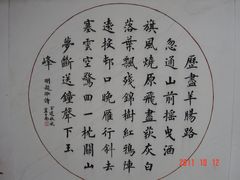 歷盡羊腸路
忽通山前搖曳酒
旗風燒原飛盡荻灰白
落葉飄殘錦樹紅鴉陣
遠投邨口晚雁行斜去
塞雲空驚回一枕關山
夢斷送鐘聲下玉
峰
2011 10 12